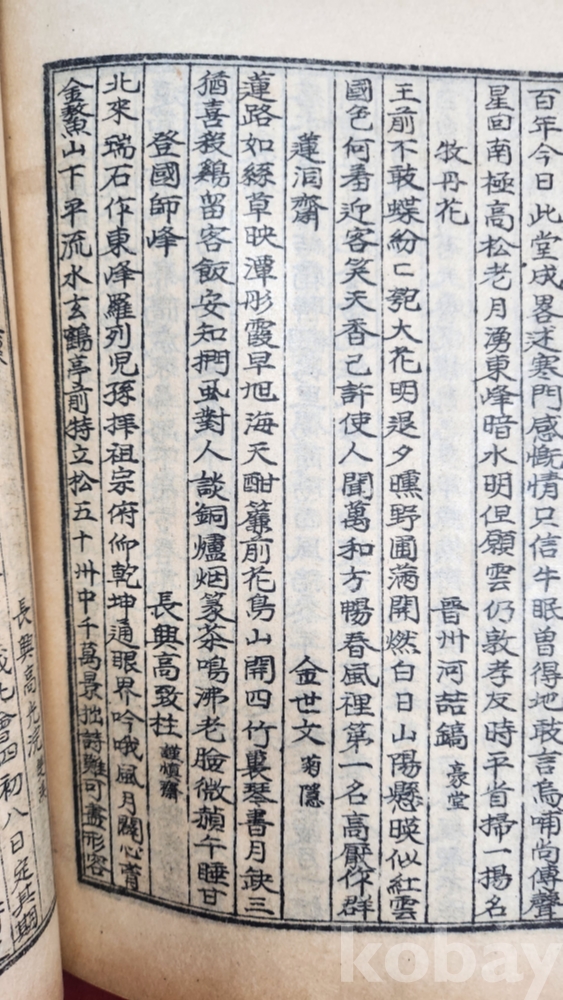 百年今日此堂成畧述寒門感慨情只信牛眠曾得地敢言烏哺尚傳聲
星回南極高松老月湧東峰暗水明但願雲仍敦孝友時平省掃一揚名
牧丹花 晋州河喆鎬 豪堂
王前不敢蝶紛〻乾大花明退夕曛野圃滿開燃白日山陽懸暎似紅雲
國色何番迎客笑天香已許使人聞萬和方暢春風裡第一名高厭作群
蓮洞齋 金世文 菊隱
蓮路如絲草映潭彤霞早旭海天酣簾前花鳥山開四竹裏琴書月缺三
猶喜殺鷄留客飯安知捫虱對人談銅爐烟篆茶鳴沸老臉微頳午睡甘
登國師峰 長興高致柱 謹愼齋
北來瑞石作東峰羅列兒孫拝祖宗俯仰乾坤通眼界吟哦風月闊心胷
金鰲山下平流水玄鶴亭前特立松五十州中千萬景拙詩難可盡形容
長興高光洗
初八日定其期
kobay